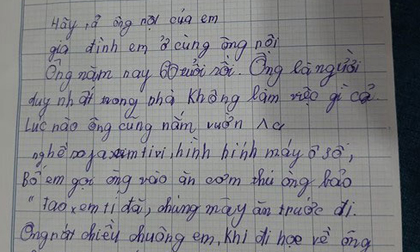 Hãy tả ông nội của em
gia đình em ở cùng ông nội
Ông năm nay 60 tuổi rồi. Ông là người
duy nhất trong nhà không làm việc gì cả
Lúc nào ông cũng nằm vườn
nghề xoja xem ti vi, hình hính máy ô số,
Bố em gọi ông vào ăn cơm thì ông bảo
"Tao xem tí đã, chúng mày ăn trước đi.
Ông rất chiều chuộng em, khi đi học về ông